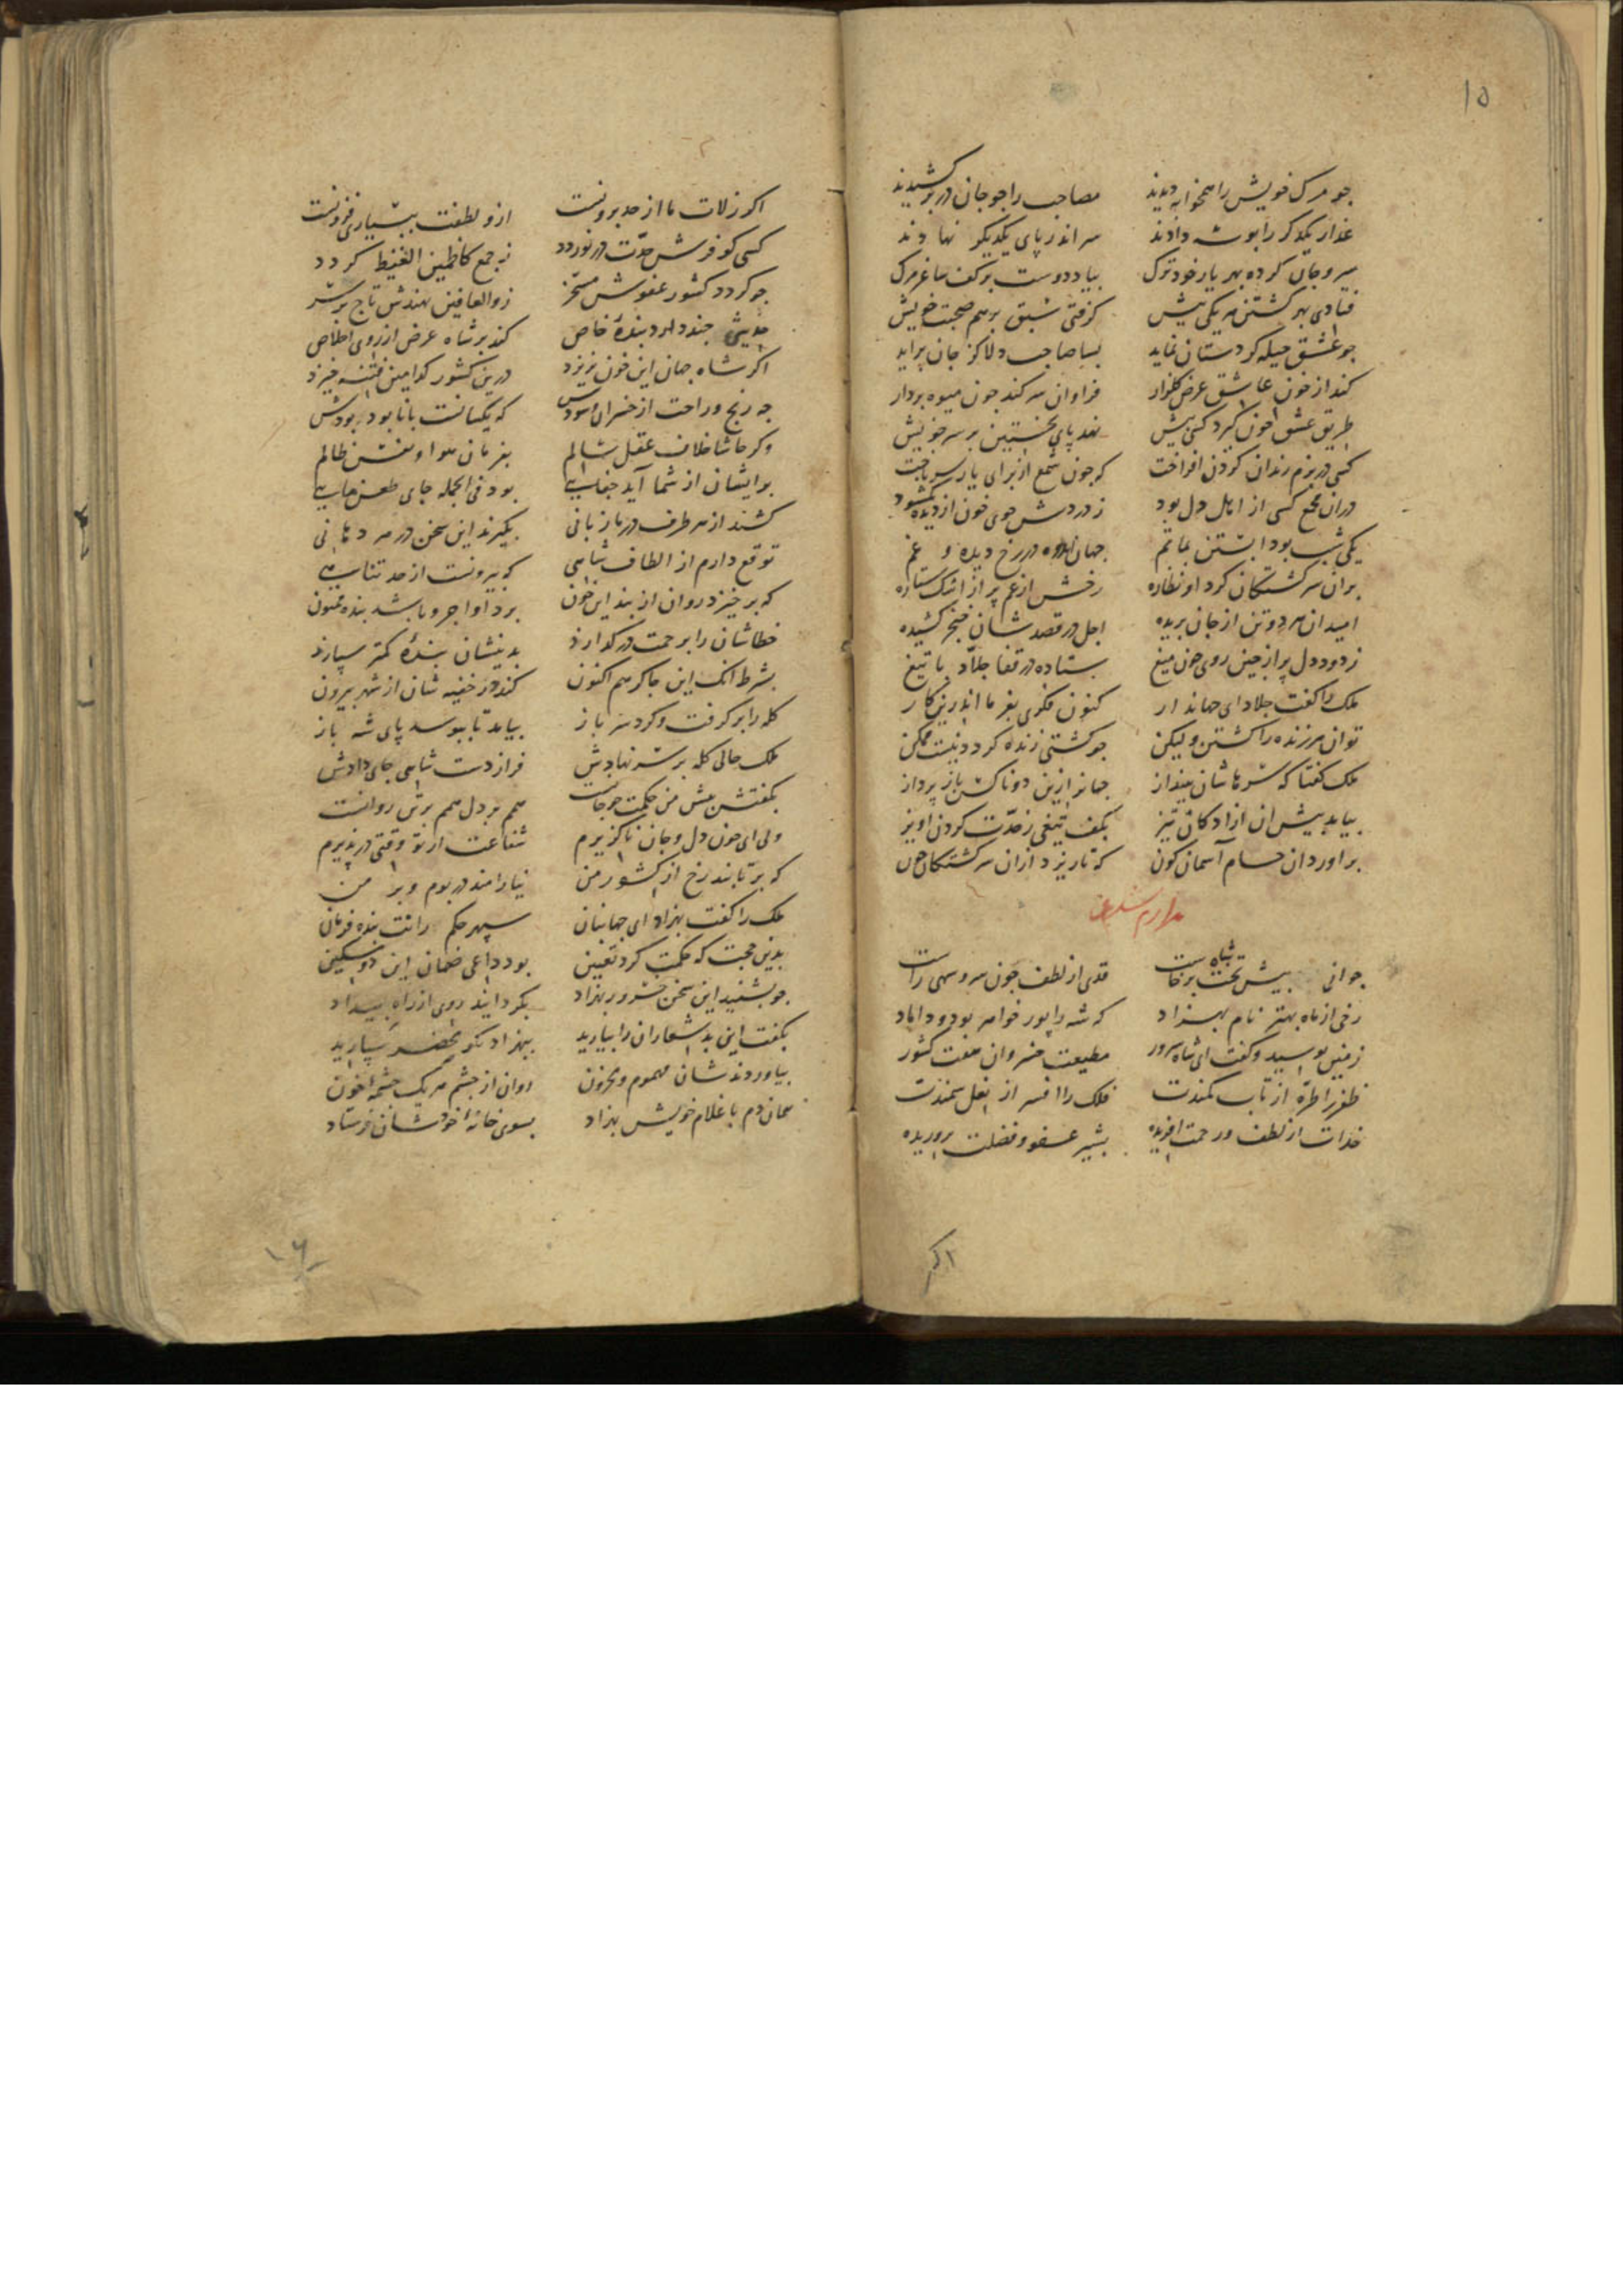 ۱۵
چو مرک خویش را همخوابه دیدند مصاحب را چو جان در بر کشیدند
عذار یکدکر را بوسه دادند سر اندر پای یکدیکر نهادند
سر و جان کرده بهر یار خود ترک بیاد دوست بر کف ساغر مرک
فتادی بهر کشتن هر یکی پیش کرفتی سبق بر هم صحبت خویش
چو عشق حیله کر دستان نماید بسا صاحب دلا کز جان براید
کند از خون عاشق عرض کلزار فراوان سر کند چون میوه بردار
طریق عشق خون کیرد کسی پیش نهد پای نخستین بر سر خویش
کسی در بزم رندان کردن افراخت که چون شمع از برای یار سر باخت
دران مجمع کسی از اهل دل بود ز دردش جوی خون از دیده بکشود
یکی شب بود ابستن بماتم جهان در رخ دیده و غم
بران سرکشتکان کرد او نظاره رخش از غم پر از اشک ستاره
امید ان هر دو تن از جان بریده اجل در قصد شان خنجر کشیده
ز دود دل پر از چین روی چون میغ ستاده در قفا جلاد با تیغ
ملک را کفت جلاد ای جهاندار کنون فکری بفرما اندرین کار
توان هر زنده را کشتن ولیکن چو کشتی زنده کردد نیست ممکن
ملک کفتا که سرهاشان بینداز جهانرا زین دو ناکس باز پرداز
بیامد پیش ان ازادکان تیز بکف تیغی ز حدت کردن اویز
براورد ان حسام آسمان کون که تا ریزد ازان سرکشتکان خون
جوانی پیش تخت شاه برخاست قدی از لطف چون سرو سهی راست
رخی از ماه بهتر نام بهزاد که شه را پور خواهر بود و داماد
زمین بوسید و کفت ای شاه سرور مطیعت خسروان هفت کشور
ظفر را طره از تاب کمندت فلک را افسر از نعل سمندت
خدات از لطف و رحمت افریده بشیر عفو و فضلت پروریده
اکر
اکر زلات ما از حد برونست ازو لطفت ببسیاری فزونست
کسی کو فرش حدت در نوردد ز جمع کاظمین الغیظ کردد
چو کردد کشور عفوش مسخر ز والعافین نهندش تاج بر سر
حدیثی چند دارد بنده خاص کند بر شاه عرض از روی اخلاص
اکر شاه جهان این خون نریزد درین کشور کدامین فتنه خیزد
چه رنج و راحت از خسران و سودش که یکسانست با نابود بودش
وکر حاشا خلاف عقل سالم بفرمان هوا و نفس ظالم
برایشان از شما آید جفایی بود فی الجمله جای طعن جایی
کشند از هر طرف در ما زبانی بکیرند این سخن در هر دهانی
توقع دارم از الطاف شاهی که بیرونست از حد تناهی
که برخیزد روان از بند این خون برد او اجر و باشد بنده ممنون
خطاشان را برحمت در کذارد بدینشان بنده کمتر سپارد
بشرط انک این چاکر هم اکنون کند در خفیه شان از شهر بیرون
کله را بر کرفت و کرد سر باز بیامد تا ببوسد پای شه باز
ملک حالی کله بر سر نهادش فراز دست شاهی جای دادش
بکفتش پیش من حکمت چو جانست هم بر دل هم بر تن روانست
ولی ای چون دل و جان ناکزیرم شفاعت از تو وقتی در پذیرم
که برتابند رخ از کشور من نیارامند در بوم و بر من
ملک را کفت بهزاد ای جهانبان سپهر حکم رانت بنده فرمان
بدین حجت که حکمت کرد تعیین بود داعی ضمان این دو مسکین
چو بشنید این سخن خسرو ز بهزاد بکردانید روی از راه بیداد
بکفت این بد شعاران را بیارید ببهزاد نکو محضر سپارید
بیاوردند شان مهموم و محزون روان از چشم هر یک چشمه خون
همان دم با غلام خویش بهزاد بسوی خانه خود شان فرستاد
۱۶